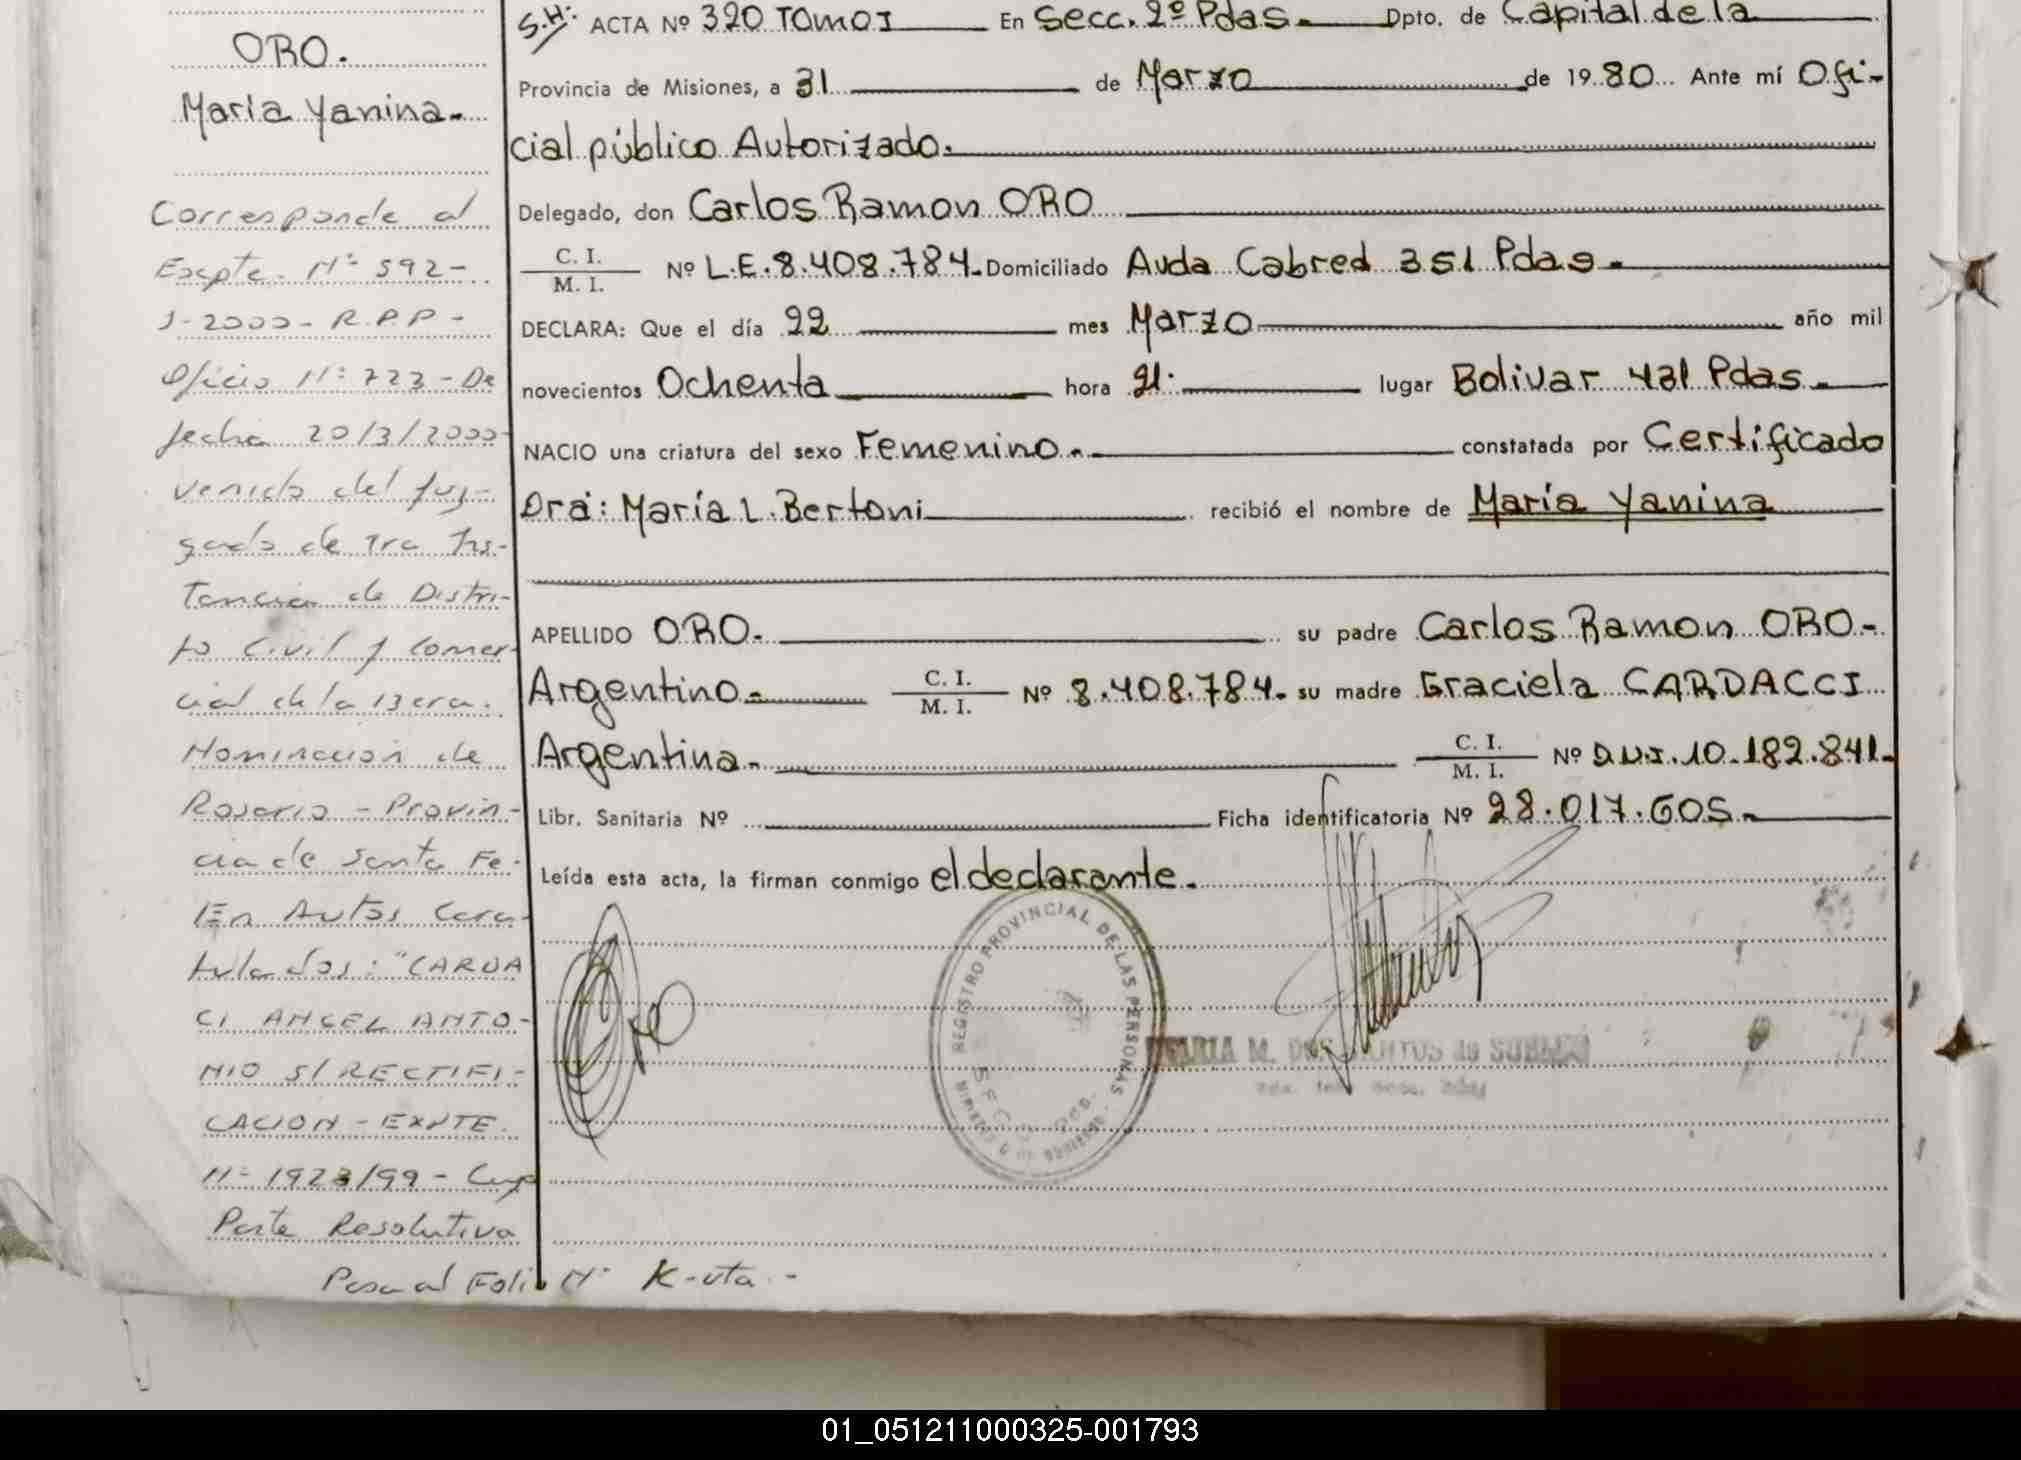 ORO.
María Yanina.-
Corresponde al
Expte. Nº 592-
J-2000- R.P.P-
Oficio Nº 723- De
fecha 20/3/2000
venido del Juz-
gado de 1ra Ins-
tancia de Distri-
to Civil y Comer-
cial de la 13era.
Nominación de
Rosario - Provin-
cia de Santa Fe.
En Autos Cara-
tulados: "CARDA
CI ANGEL ANTO-
NIO S/ RECTIFI-
CACION - EXPTE.
Nº 1923/99 - Cuya
Parte Resolutiva
Pasa al Folio Nº K-vta.-
S.H: ACTA Nº 320 TOMO I En Secc. 2º Pdas. Dpto. de Capital de la
Provincia de Misiones, a 31 de Marzo de 1980 Ante mí Ofi-
cial público Autorizado.
Delegado, don Carlos Ramon ORO
C. I. / M. I. Nº L.E. 8.408.784. Domiciliado Avda Cabred 351 Pdas.
DECLARA: Que el día 22 mes Marzo año mil
novecientos Ochenta hora 21. lugar Bolivar 431 Pdas.
NACIO una criatura del sexo Femenino.- constatada por Certificado
Dra: María L. Bertoni recibió el nombre de María Yanina
APELLIDO ORO. su padre Carlos Ramon ORO-
Argentino.- C. I. / M. I. Nº 8.408.784. su madre Graciela CARDACCI
Argentina. C. I. / M. I. Nº D.N.I. 10.182.841-
Libr. Sanitaria Nº Ficha identificatoria Nº 28.017.605.
Leída esta acta, la firman conmigo el declarante.
REGISTRO PROVINCIAL DE LAS PERSONAS
MARIA M. DOS SANTOS de
01_051211000325-001793